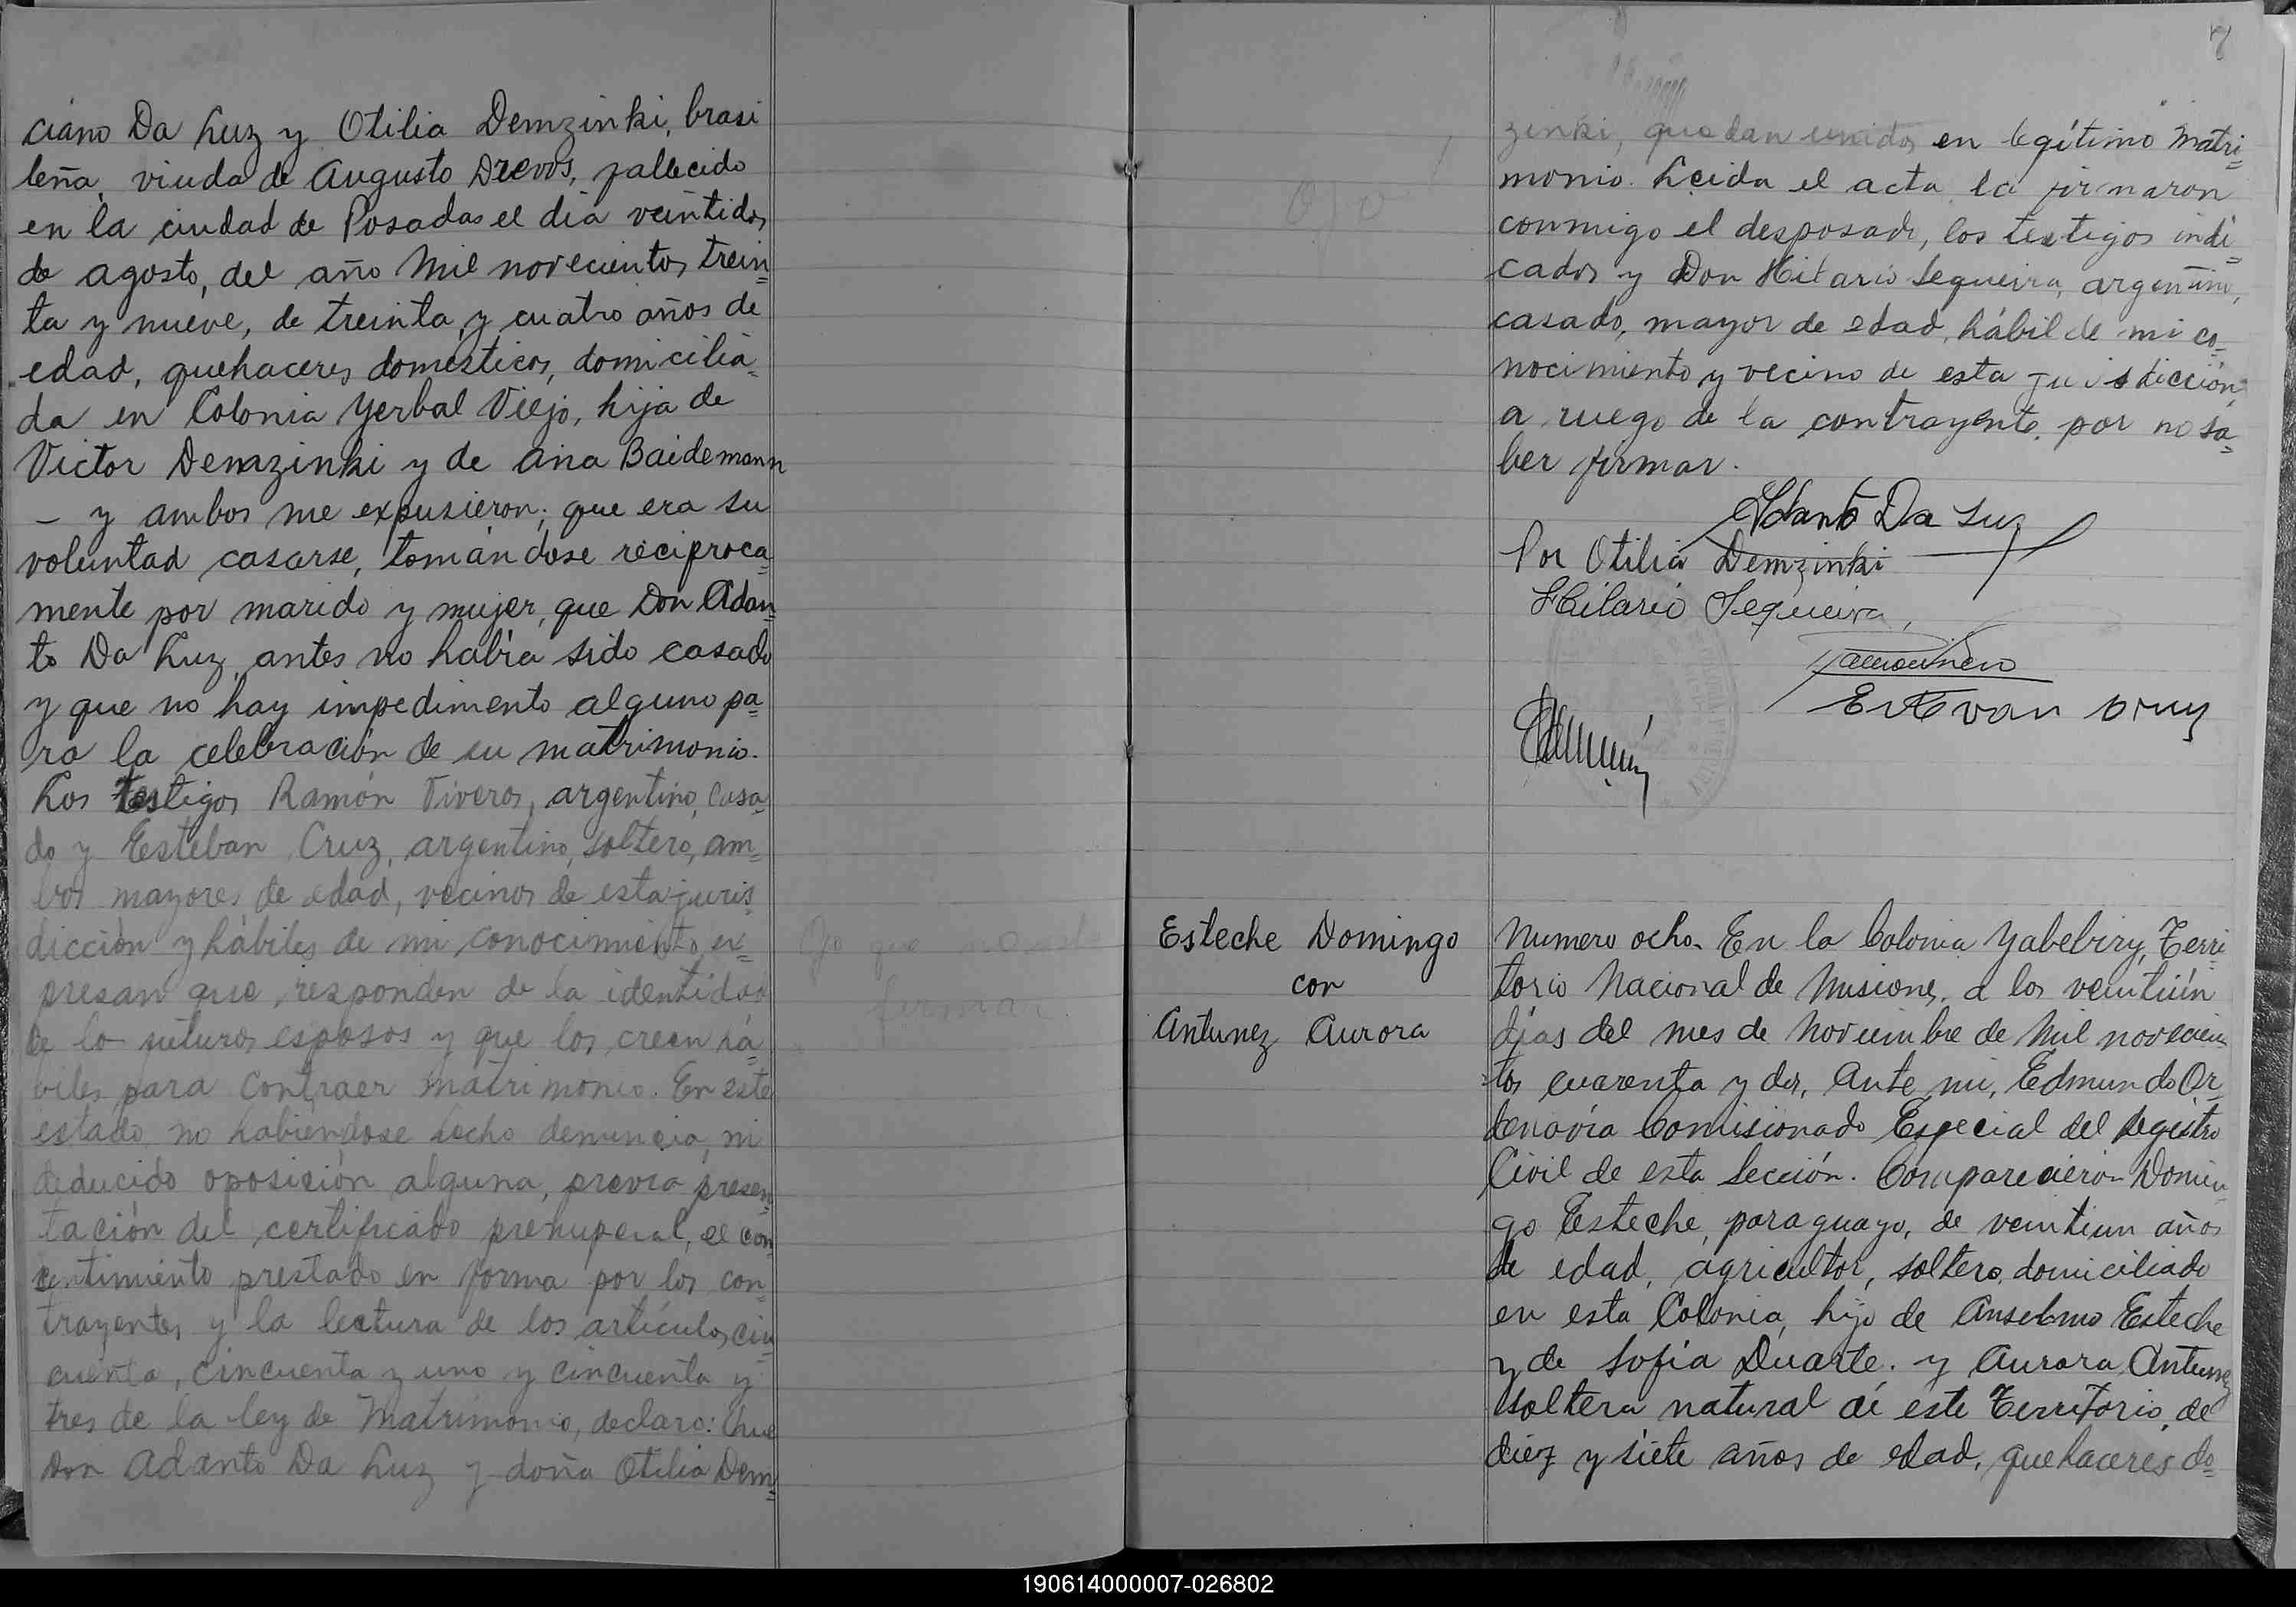 ciano Da Luz y Otilia Demzinki, brasi
leña, viuda de Augusto Drevos, fallecido
en la ciudad de Posadas el día veintidos
de agosto, del año mil novecientos trein=
ta y nueve, de treinta y cuatro años de
edad, quehaceres domésticos, domicilia=
da en Colonia Yerbal Viejo, hija de
Victor Demzinki y de Ana Baidemann
— y ambos me expusieron; que era su
voluntad casarse, tomándose recíproca=
mente por marido y mujer, que Don Adan=
to Da Luz, antes no había sido casado
y que no hay impedimento alguno pa=
ra la celebración de su matrimonio.
Los testigos Ramón Viveros, argentino, casa=
do y Esteban Cruz, argentino, soltero, am=
bos mayores de edad, vecinos de esta juris
dicción y hábiles de mi conocimiento, ex=
presan que responden de la identidad
de lo futuros esposos y que los creen há=
biles para contraer matrimonio. En este
estado no habiendose hecho denuncia, ni
deducido oposición alguna, previa presen=
tación del certificado prenupcial, el con=
sentimiento prestado en forma por los con=
trayentes y la lectura de los artículos cin=
cuenta, cincuenta y uno y cincuenta y
tres de la ley de Matrimonio, declaro: Que
Don Adanto Da Luz y doña Otilia Dem=
Ojo que no
firmar
7
Ojo
zinki, quedan unidos en legítimo Matri=
monio. Leida el acta la firmaron
conmigo el desposado, los testigos indi=
cados y Don Hilario Sequeira, argentino,
casado, mayor de edad, hábil de mi co=
nocimiento y vecino de esta jurisdicción,
a ruego de la contrayente por no sa=
ber firmar.
Adanto Da Luz
Por Otilia Demzinki
Hilario Sequeira,
Estevan Cruz
Esteche Domingo
con
Antunez Aurora
Numero ocho. En la Colonia Yabebiry, Terri=
torio Nacional de Misiones, a los veintiún
días del mes de Noviembre de mil novecien
tos cuarenta y dos, Ante mi, Edmundo Or=
denavía Comisionado Especial del Registro
Civil de esta Sección. Comparecieron Domin=
go Esteche, paraguayo, de veintiun años
de edad, agricultor, soltero, domiciliado
en esta Colonia, hijo de Anselmo Esteche
y de Sofía Duarte. y Aurora Antunez
soltera natural de este Territorio, de
diez y siete años de edad, quehaceres do=
190614000007-026802